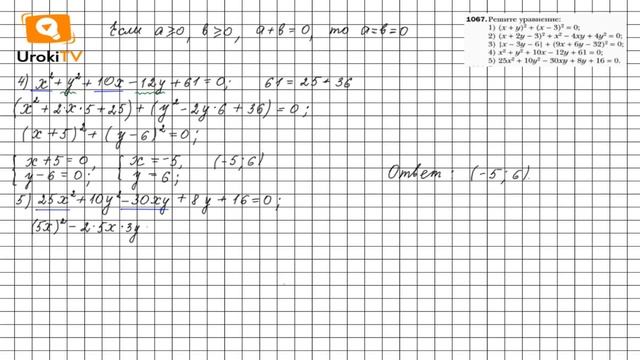 Если a ⩾ 0, b ⩾ 0, a + b = 0, то a = b = 0
UrokiTV
1067. Решите уравнение:
1) (x + y)² + (x − 3)² = 0;
2) (x + 2y − 3)² + x² − 4xy + 4y² = 0;
3) |x − 3y − 6| + (9x + 6y − 32)² = 0;
4) x² + y² + 10x − 12y + 61 = 0;
5) 25x² + 10y² − 30xy + 8y + 16 = 0.
4) x² + y² + 10x − 12y + 61 = 0; 61 = 25 + 36
(x² + 2·x·5 + 25) + (y² − 2y·6 + 36) = 0;
(x + 5)² + (y − 6)² = 0;
{ x + 5 = 0, { x = −5, (−5; 6)
{ y − 6 = 0; { y = 6;
Ответ: (−5; 6)
5) 25x² + 10y² − 30xy + 8y + 16 = 0;
(5x)² − 2·5x·3y